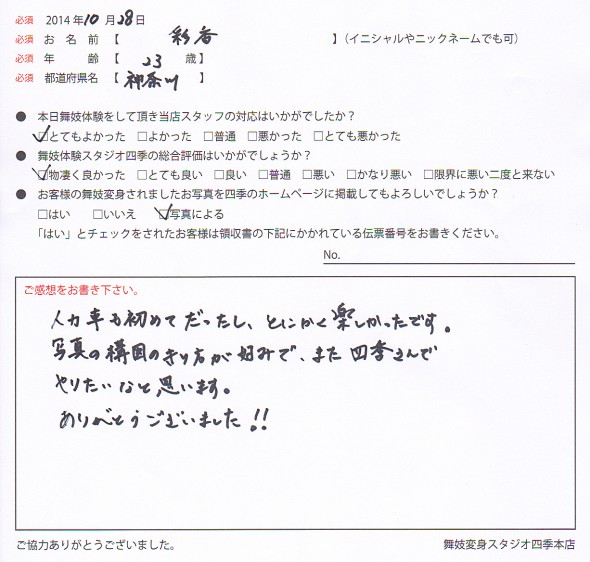 必須 2014年10月28日
必須 お名前【 彩香 】(イニシャルやニックネームでも可)
必須 年齢【 23 歳】
必須 都道府県名【 神奈川 】
● 本日舞妓体験をして頂き当店スタッフの対応はいかがでしたか?
☑とてもよかった □よかった □普通 □悪かった □とても悪かった
● 舞妓体験スタジオ四季の総合評価はいかがでしょうか?
☑物凄く良かった □とても良い □良い □普通 □悪い □かなり悪い □限界に悪い二度と来ない
● お客様の舞妓変身されましたお写真を四季のホームページに掲載してもよろしいでしょうか?
□はい □いいえ ☑写真による
「はい」とチェックをされたお客様は領収書の下記にかかれている伝票番号をお書きください。
No.
ご感想をお書き下さい。
人力車も初めてだったし、とにかく楽しかったです。
写真の構図のきり方が好みで、また四季さんで
やりたいなと思います。
ありがとうございました!!
ご協力ありがとうございました。
舞妓変身スタジオ四季本店